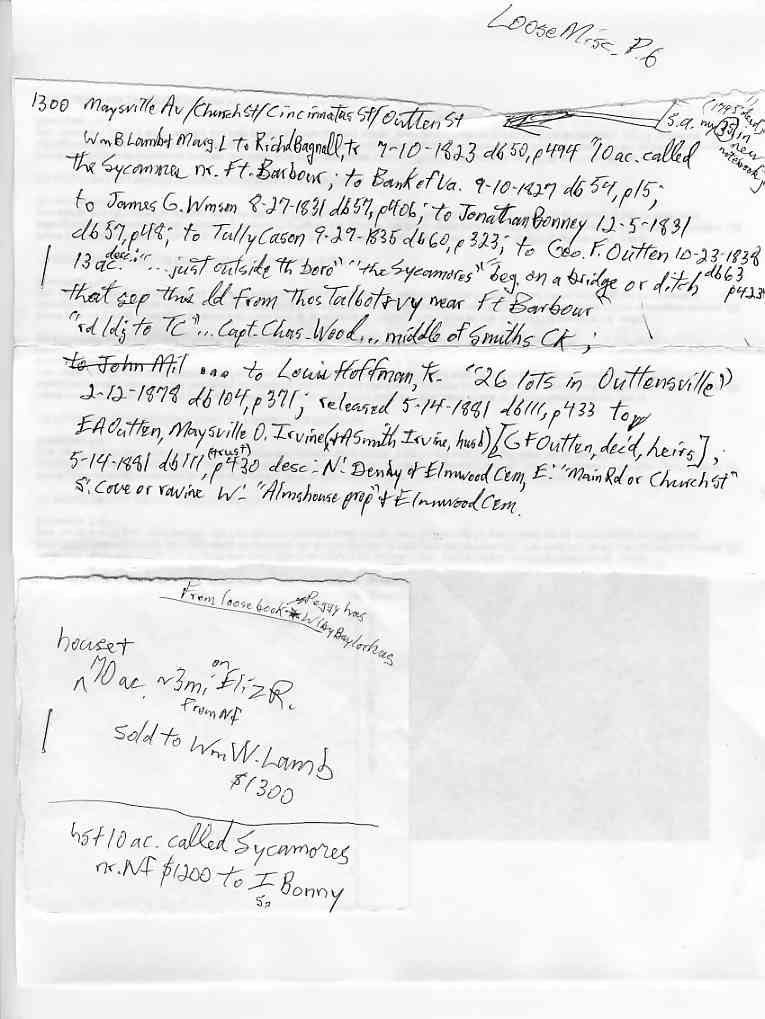 Loose Misc. P.6
1300 Maysville Av/Church St/Cincinnatus St/Outten St
[s.a. my 35 in new notebook]
(1795 deed)
Wm B Lamb & Marg. L to Richd Bagnall, tr 7-10-1823 db50, p494 "10 ac. called
the Sycamores nr. Ft. Barbour; to Bank of Va. 9-10-1827 db54, p15;
to James G. Wmsm 8-27-1831 db57, p406; to Jonathan Bonney 12-5-1831
db57, p48; to Tully Cason 9-29-1835 db60, p323; to Geo. F. Outten 10-23-1838
db63
p423
13 ac. desc: "...just outside th boro" "the Sycamores" beg. on a bridge or ditch
that sep this ld from Thos Talbot & vy near Ft Barbour
"rd ldg to TC"... Capt. Chas. Wood... middle of Smiths Ck;
to John Mil ... to Louis Hoffman, tr. "26 lots in Outtensville"
2-12-1878 db104, p371; released 5-14-1881 db111, p433 to
EA Outten, Maysville O. Irvine (& A Smith Irvine, husb) [GF Outten, dec'd, heirs];
5-14-1881 db111, p430 (trust) desc: N: Denby & Elmwood Cem, E: "Main Rd or Church St"
S: Cove or ravine W: "Almshouse prop" & Elmwood Cem.
From loose book * Peggy has
Wlby Baylor has
house &
^70 ac. ~3mi on Eliz R.
from Nf
sold to Wm W. Lamb
$1300
hs & 10 ac. called Sycamores
nr. Nf $1200 to I Bonny